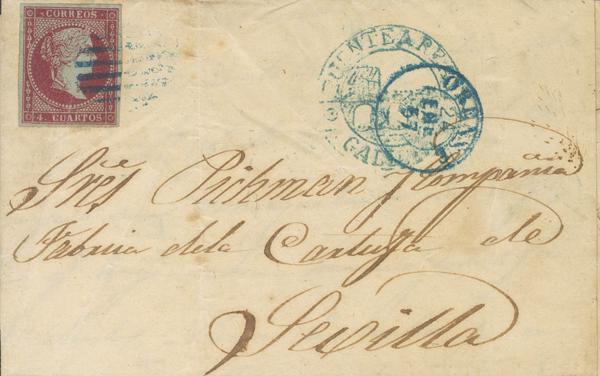 CORREOS
4. CUARTOS
PUENTEAREAS
GALICIA
24
ENE
57
Sres Pickman y Compañia
Fabrica de la Cartuja de
Sevilla